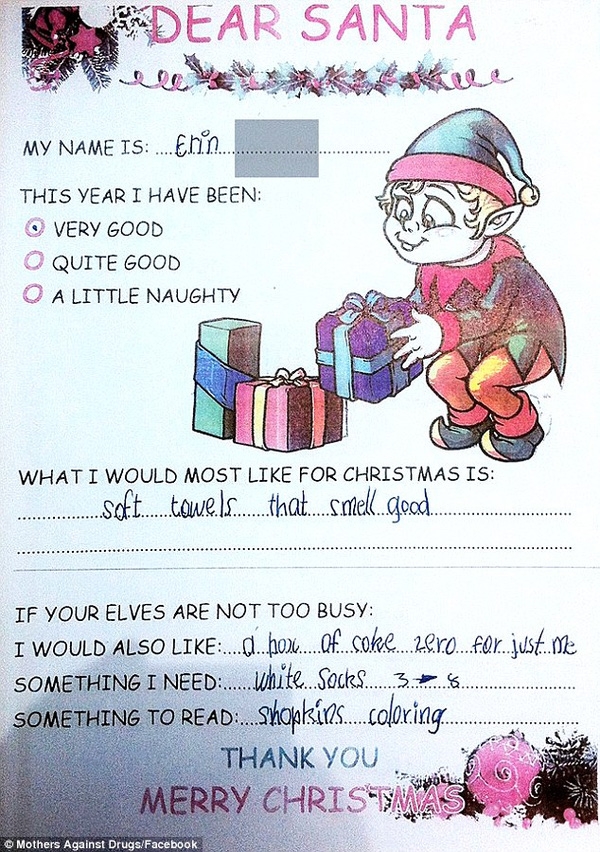 DEAR SANTA
MY NAME IS: Erin
THIS YEAR I HAVE BEEN:
VERY GOOD
QUITE GOOD
A LITTLE NAUGHTY
WHAT I WOULD MOST LIKE FOR CHRISTMAS IS:
soft towels that smell good
IF YOUR ELVES ARE NOT TOO BUSY:
I WOULD ALSO LIKE: a box of coke zero for just me
SOMETHING I NEED: white socks 3 → 8
SOMETHING TO READ: shopkins coloring
THANK YOU
MERRY CHRISTMAS
© Mothers Against Drugs/Facebook